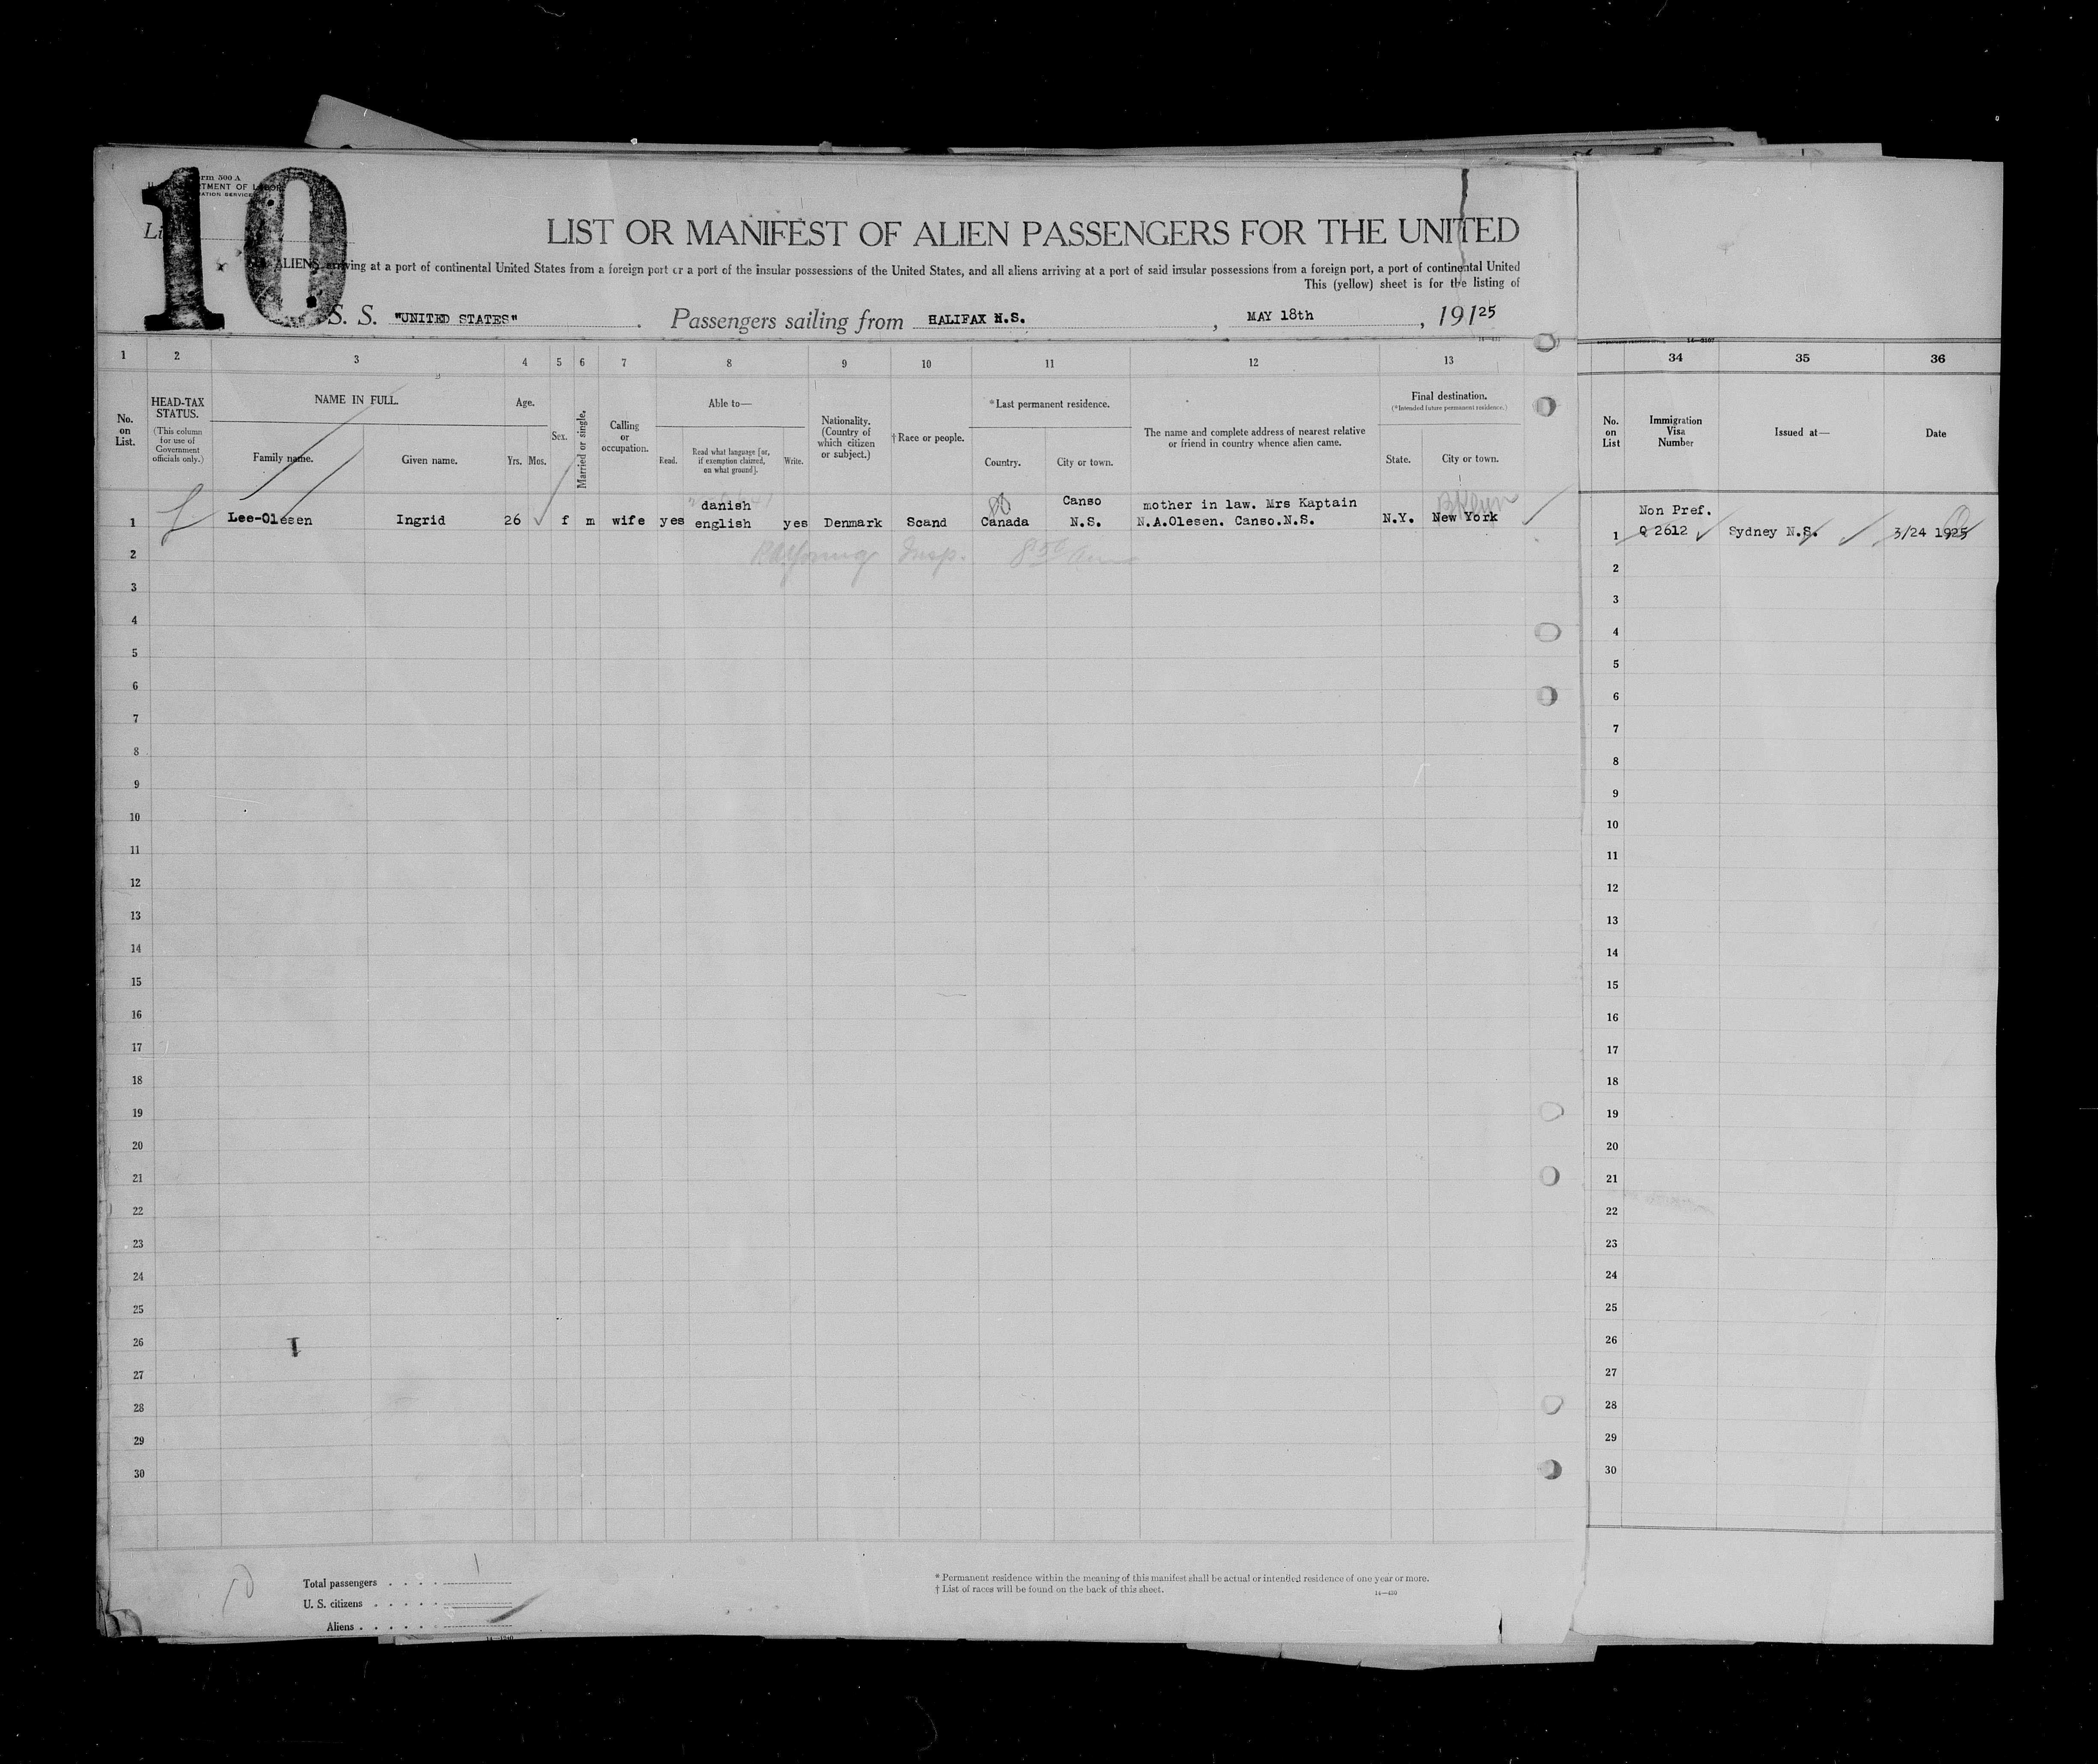 10
LIST OR MANIFEST OF ALIEN PASSENGERS FOR THE UNITED
ALIENS arriving at a port of continental United States from a foreign port or a port of the insular possessions of the United States, and all aliens arriving at a port of said insular possessions from a foreign port, a port of continental United
This (yellow) sheet is for the listing of
S. S. "UNITED STATES" . Passengers sailing from HALIFAX N.S. , MAY 18th , 19125
1 2 3 4 5 6 7 8 9 10 11 12 13 34 35 36
No. on List.
HEAD-TAX STATUS.
(This column for use of Government officials only.)
NAME IN FULL.
Family name. Given name.
Age.
Yrs. Mos.
Sex.
Married or single.
Calling or occupation.
Able to—
Read. Read what language [or, if exemption claimed, on what ground]. Write.
Nationality. (Country of which citizen or subject.)
†Race or people.
*Last permanent residence.
Country. City or town.
The name and complete address of nearest relative or friend in country whence alien came.
Final destination.
(*Intended future permanent residence.)
State. City or town.
No. on List
Immigration Visa Number
Issued at—
Date
1 Lee-Olesen Ingrid 26 f m wife yes danish english yes Denmark Scand Canada Canso N.S. mother in law. Mrs Kaptain N.A.Olesen. Canso.N.S. N.Y. New York
1 Non Pref. Q 2612 Sydney N.S. 3/24 1925
2 2
3 3
4 4
5 5
6 6
7 7
8 8
9 9
10 10
11 11
12 12
13 13
14 14
15 15
16 16
17 17
18 18
19 19
20 20
21 21
22 22
23 23
24 24
25 25
26 26
27 27
28 28
29 29
30 30
Total passengers . . . . 1
U. S. citizens . . . . .
Aliens . . . . . .
* Permanent residence within the meaning of this manifest shall be actual or intended residence of one year or more.
† List of races will be found on the back of this sheet.
14—430